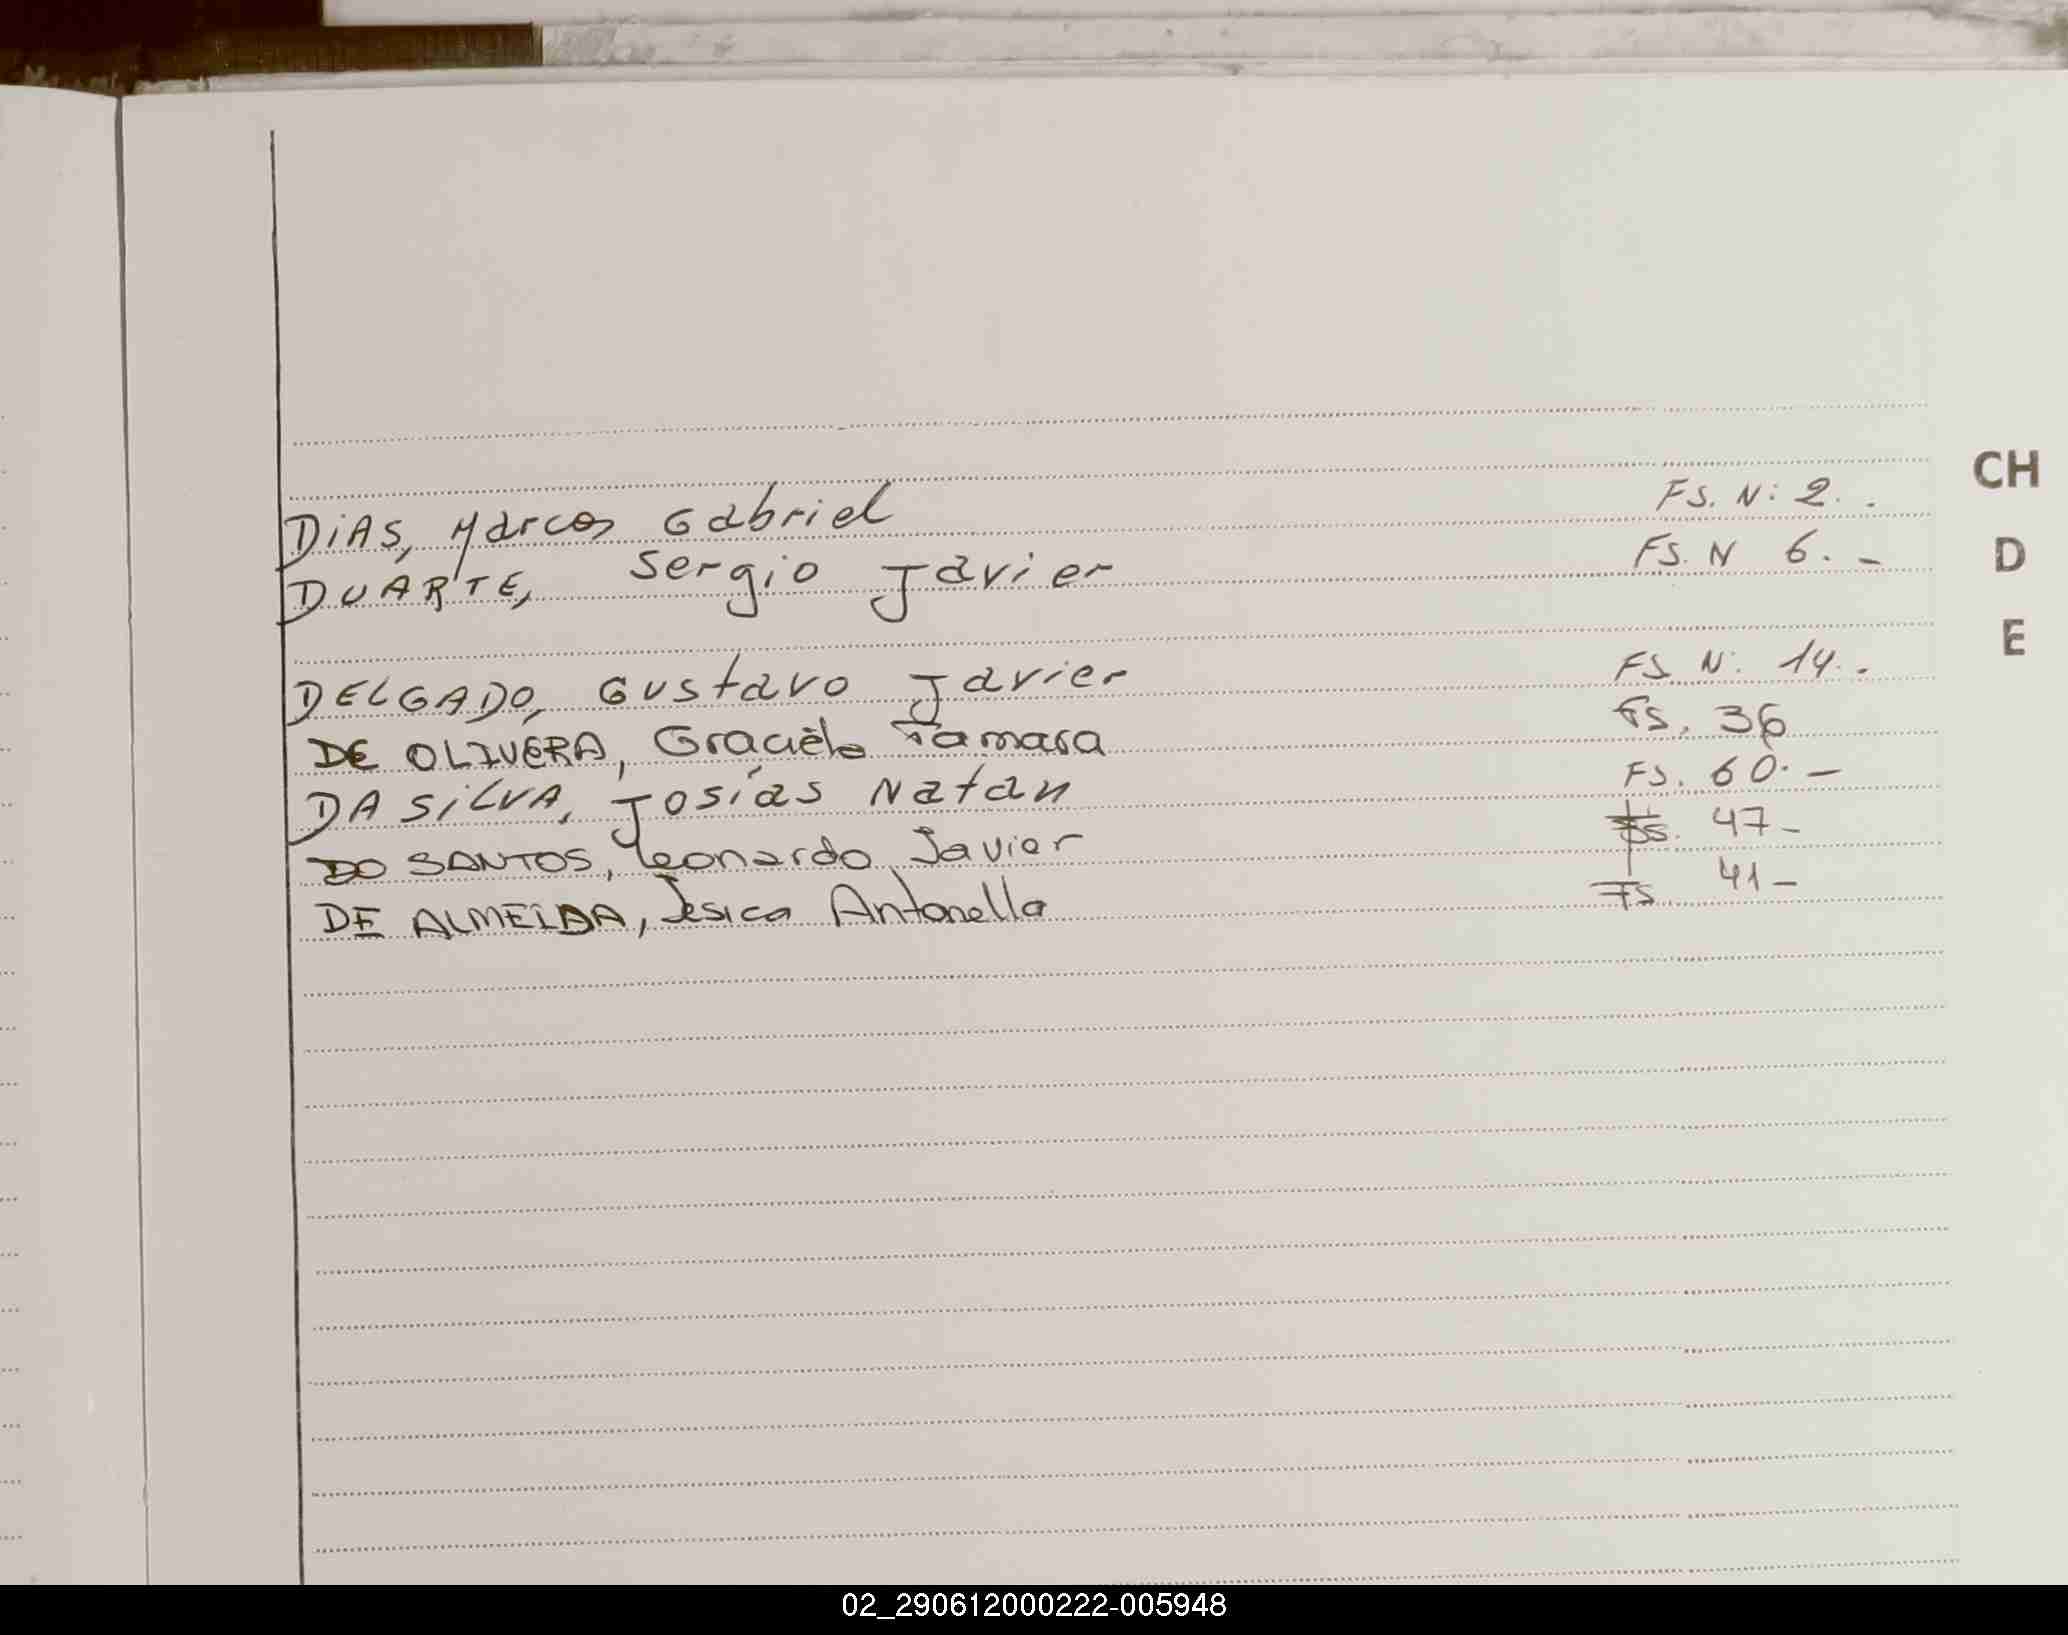 DiAS, Marcos Gabriel FS. N: 2. .
DUARTE, Sergio Javier FS. N 6. -
DELGADO, Gustavo Javier FS N: 14. .
DE OLIVERA, Graciela Tamara Fs. 36
DA SiLVA, Josías Natan FS. 60. -
DO SANTOS, Leonardo Javier Fs. 47 -
DE ALMEIDA, Jesica Antonella Fs 41 -
CH
D
E
02_290612000222-005948